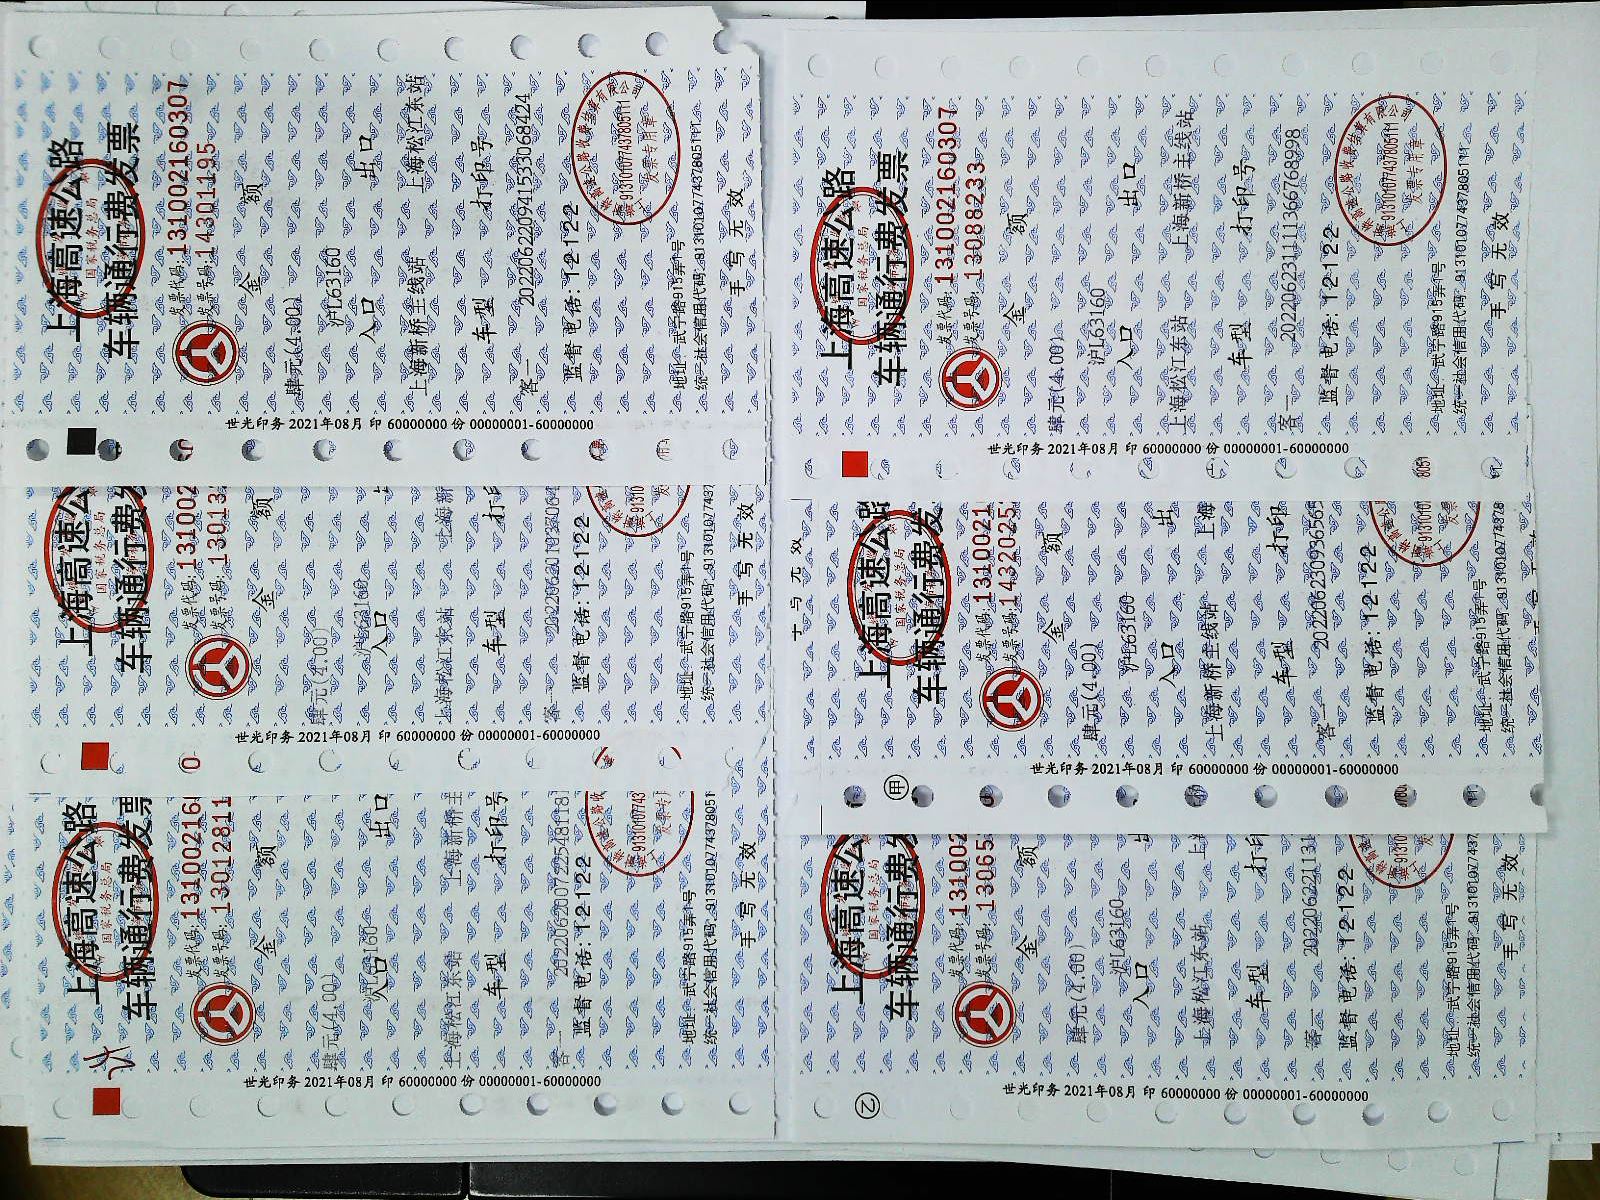 上海高速公路
国家税务总局
车辆通行费发票
发票代码:131002160307
发票号码:14301195
金 额
肆元(4.00)
沪L63160
入口 出口
上海新桥主线站 上海松江东站
车型 打印号
客一 20220622094153306842​4
监督电话: 12122
发票专用章
地址:武宁路915弄1号
统一社会信用代码:913101077437805111
手 写 无 效
世光印务 2021年08月 印 60000000 份 00000001-60000000
上海高速公路
国家税务总局
车辆通行费发
发票代码:131002
发票号码:13013
金 额
肆元(4.00)
沪L63160
入口
上海松江东站 上海新
车型 打印
客一
监督电话: 12122
地址:武宁路915弄1号
统一社会信用代码:9131010777437
手 写 无 效
世光印务 2021年08月 印 60000000 份 00000001-60000000
上海高速公路
国家税务总局
车辆通行费发票
发票代码:13100216
发票号码:13012811
金 额
肆元(4.00)
沪L63160
入口 出口
上海松江东站 上海新桥主
车型 打印号
客一 202206200722548118
监督电话: 12122
地址:武宁路915弄1号
统一社会信用代码:9131010774378051
手 写 无 效
世光印务 2021年08月 印 60000000 份 00000001-60000000
上海高速公路
国家税务总局
车辆通行费发票
发票代码:131002160307
发票号码:13088233
金 额
肆元(4.00)
沪L63160
入口 出口
上海松江东站 上海新桥主线站
车型 打印号
客一 20220623111136676899​8
监督电话: 12122
发票专用章
地址:武宁路915弄1号
统一社会信用代码:913101077437805111
手 写 无 效
世光印务 2021年08月 印 60000000 份 00000001-60000000
上海高速公路
国家税务总局
车辆通行费发
发票代码:1310021
发票号码:1432025
金 额
肆元(4.00)
沪L63160
入口 出
上海新桥主线站 上海
车型 打印
客一 2022062309365​65
监督电话: 12122
地址:武宁路915弄1号
统一社会信用代码:9131010774378
世光印务 2021年08月 印 60000000 份 00000001-60000000
甲
上海高速公
国家税务总局
车辆通行费发
发票代码:131002
发票号码:13065
金 额
肆元(4.00)
沪L63160
入口
上海松江东站 上
车型 打印
客一 202206221131
监督电话: 12122
地址:武宁路915弄1号
统一社会信用代码:9131010777437
手 写 无 效
世光印务 2021年08月 印 60000000 份 00000001-60000000
②